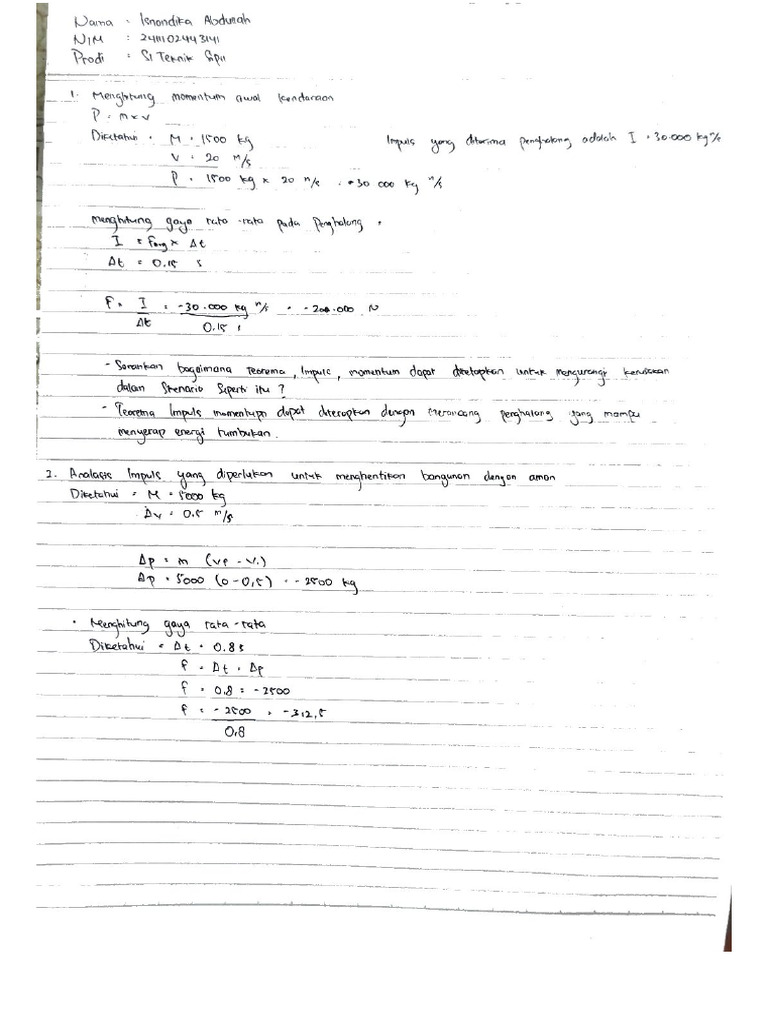 Nama : Isnandika Abdullah
NIM : 2411102443141
Prodi : S1 Teknik Sipil
1. Menghitung momentum awal kendaraan
P = m x v
Diketahui = M = 1500 kg
Impuls yang diterima penghalang adalah I = 30.000 kg m/s
V = 20 m/s
P = 1500 kg x 20 m/s = 30 000 kg m/s
Menghitung gaya rata-rata pada Penghalang
I = Favg x Δt
Δt = 0.15 s
F = I/Δt = -30.000 kg m/s / 0.15 s = -200.000 N
- Sarankan bagaimana Teorema, Impuls, momentum dapat diterapkan untuk mengurangi kerusakan
dalam Skenario Seperti itu ?
- Teorema Impuls momentupn dapat diterapkan dengan merancang penghalang yang mampu
menyerap energi tumbukan.
2. Analasis Impuls yang diperlukan untuk menghentikan bangunan dengan aman
Diketahui = M = 5000 kg
Δv = 0.5 m/s
Δp = m (vf - vi)
Δp = 5000 (0 - 0,5) = -2500 kg
• Menghitung gaya rata-rata
Diketahui = Δt = 0.8 s
F = Δt = Δp
F = 0.8 = -2500
F = -2500 / 0,8 = -312,5